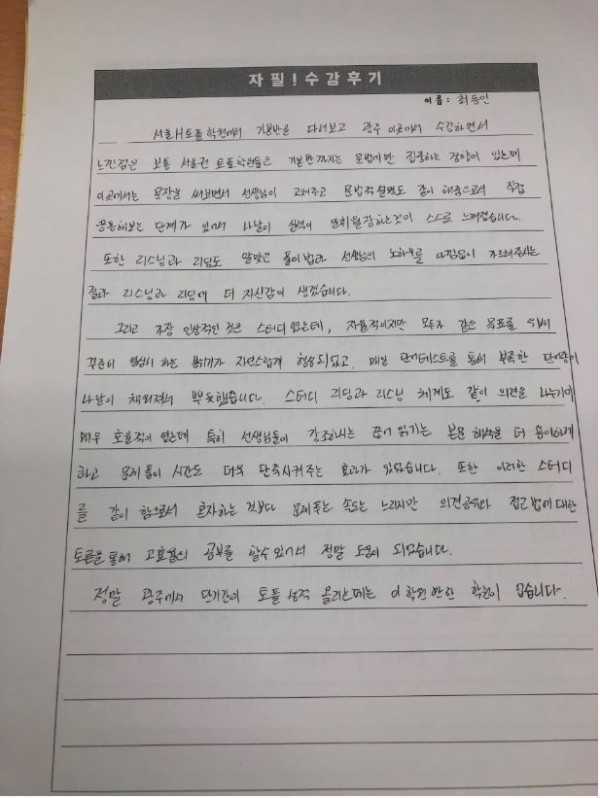 자필! 수강후기
이름: 최동인
서울H토플학원에서 기본반을 다녀보고 광주 이곳에서 수강하면서
느낀점은 보통 서울권 토플학원들은 기본반까지는 문법에만 집중하는 경향이 있는데
이곳에서는 문장을 써보면서 선생님이 고쳐주고 문법적 설명도 같이 해줌으로서 직접
응용해보는 단계가 있어서 나날이 실력이 일취월장하는것이 스스로 느껴졌습니다.
또한 리스닝과 리딩도 알맞은 풀이법과 선생님의 노하우를 아낌없이 가르쳐주시는
결과 리스닝과 리딩에 더 자신감이 생겼습니다.
그리고 가장 인상적인 것은 스터디 였는데, 자율적이지만 모두가 같은 목표를 위해
꾸준히 열심히 하는 분위기가 자연스럽게 형성되었고, 매일 단어테스트를 통해 부족한 단어량이
나날이 채워져서 뿌듯했습니다. 스터디 리딩과 리스닝 체계도 같이 의견을 나누기에
매우 효율적이었는데 특히 선생님들이 강조하시는 끊어 읽기는 본문 해석을 더 용이하게
하고 문제 풀이 시간도 더욱 단축시켜주는 효과가 있었습니다. 또한 이러한 스터디
를 같이 함으로서 혼자하는 것보다 문제푸는 속도는 느리지만 의견공유와 접근법에 대한
토론을 통해 고효율의 공부를 할수 있어서 정말 도움이 되었습니다.
정말 광주에서 단기간에 토플 성적 올리는데는 이 학원 만한 학원이 없습니다.